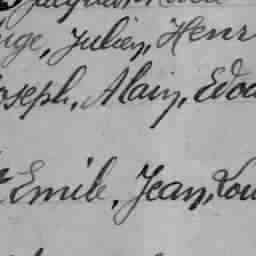 Julien, Henr
Joseph, Alain, Edou
Emile, Jean, Lou